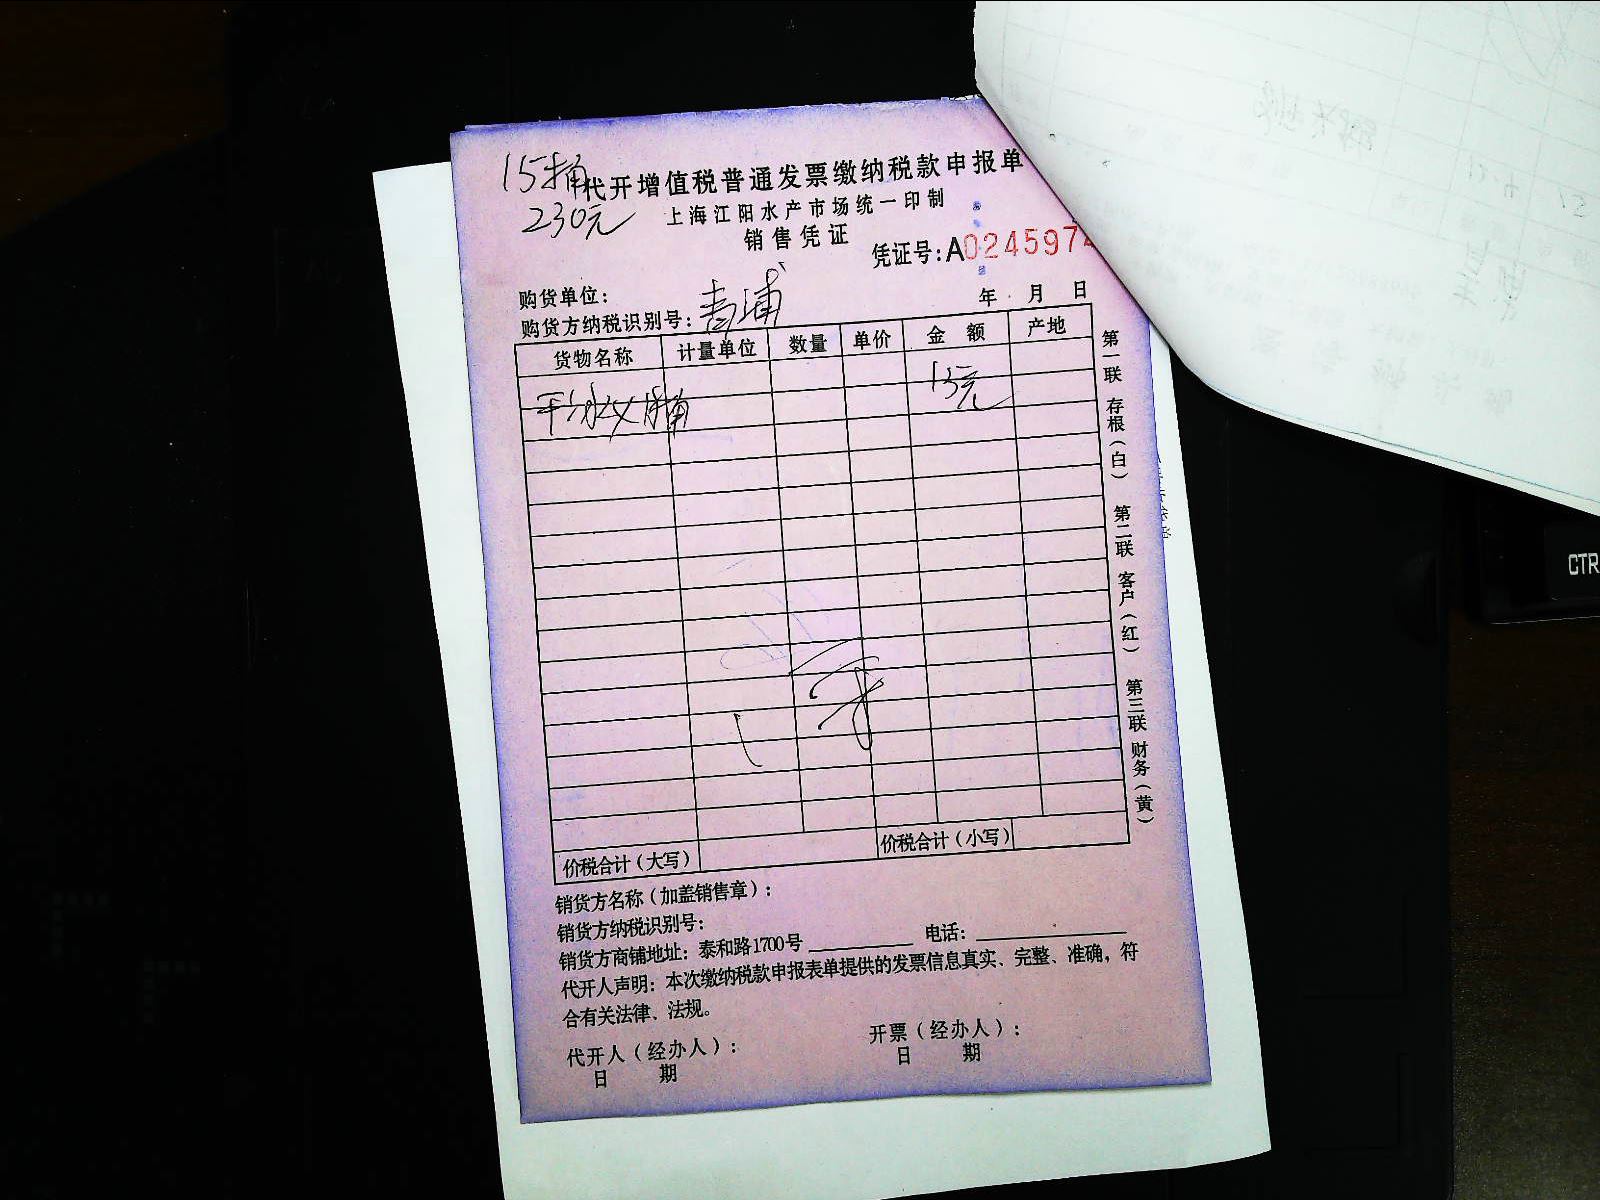 15桶
230元
代开增值税普通发票缴纳税款申报单
上海江阳水产市场统一印制
销售凭证
凭证号:A0245974
购货单位:
年 月 日
购货方纳税识别号: 青浦
货物名称 计量单位 数量 单价 金 额 产地
15元
价税合计(大写) 价税合计(小写)
销货方名称(加盖销售章):
销货方纳税识别号:
销货方商铺地址: 泰和路1700号 电话:
代开人声明: 本次缴纳税款申报表单提供的发票信息真实、完整、准确,符
合有关法律、法规。
代开人(经办人): 开票(经办人):
日 期 日 期
第一联 存根(白) 第二联 客户(红) 第三联 财务(黄)
CTR